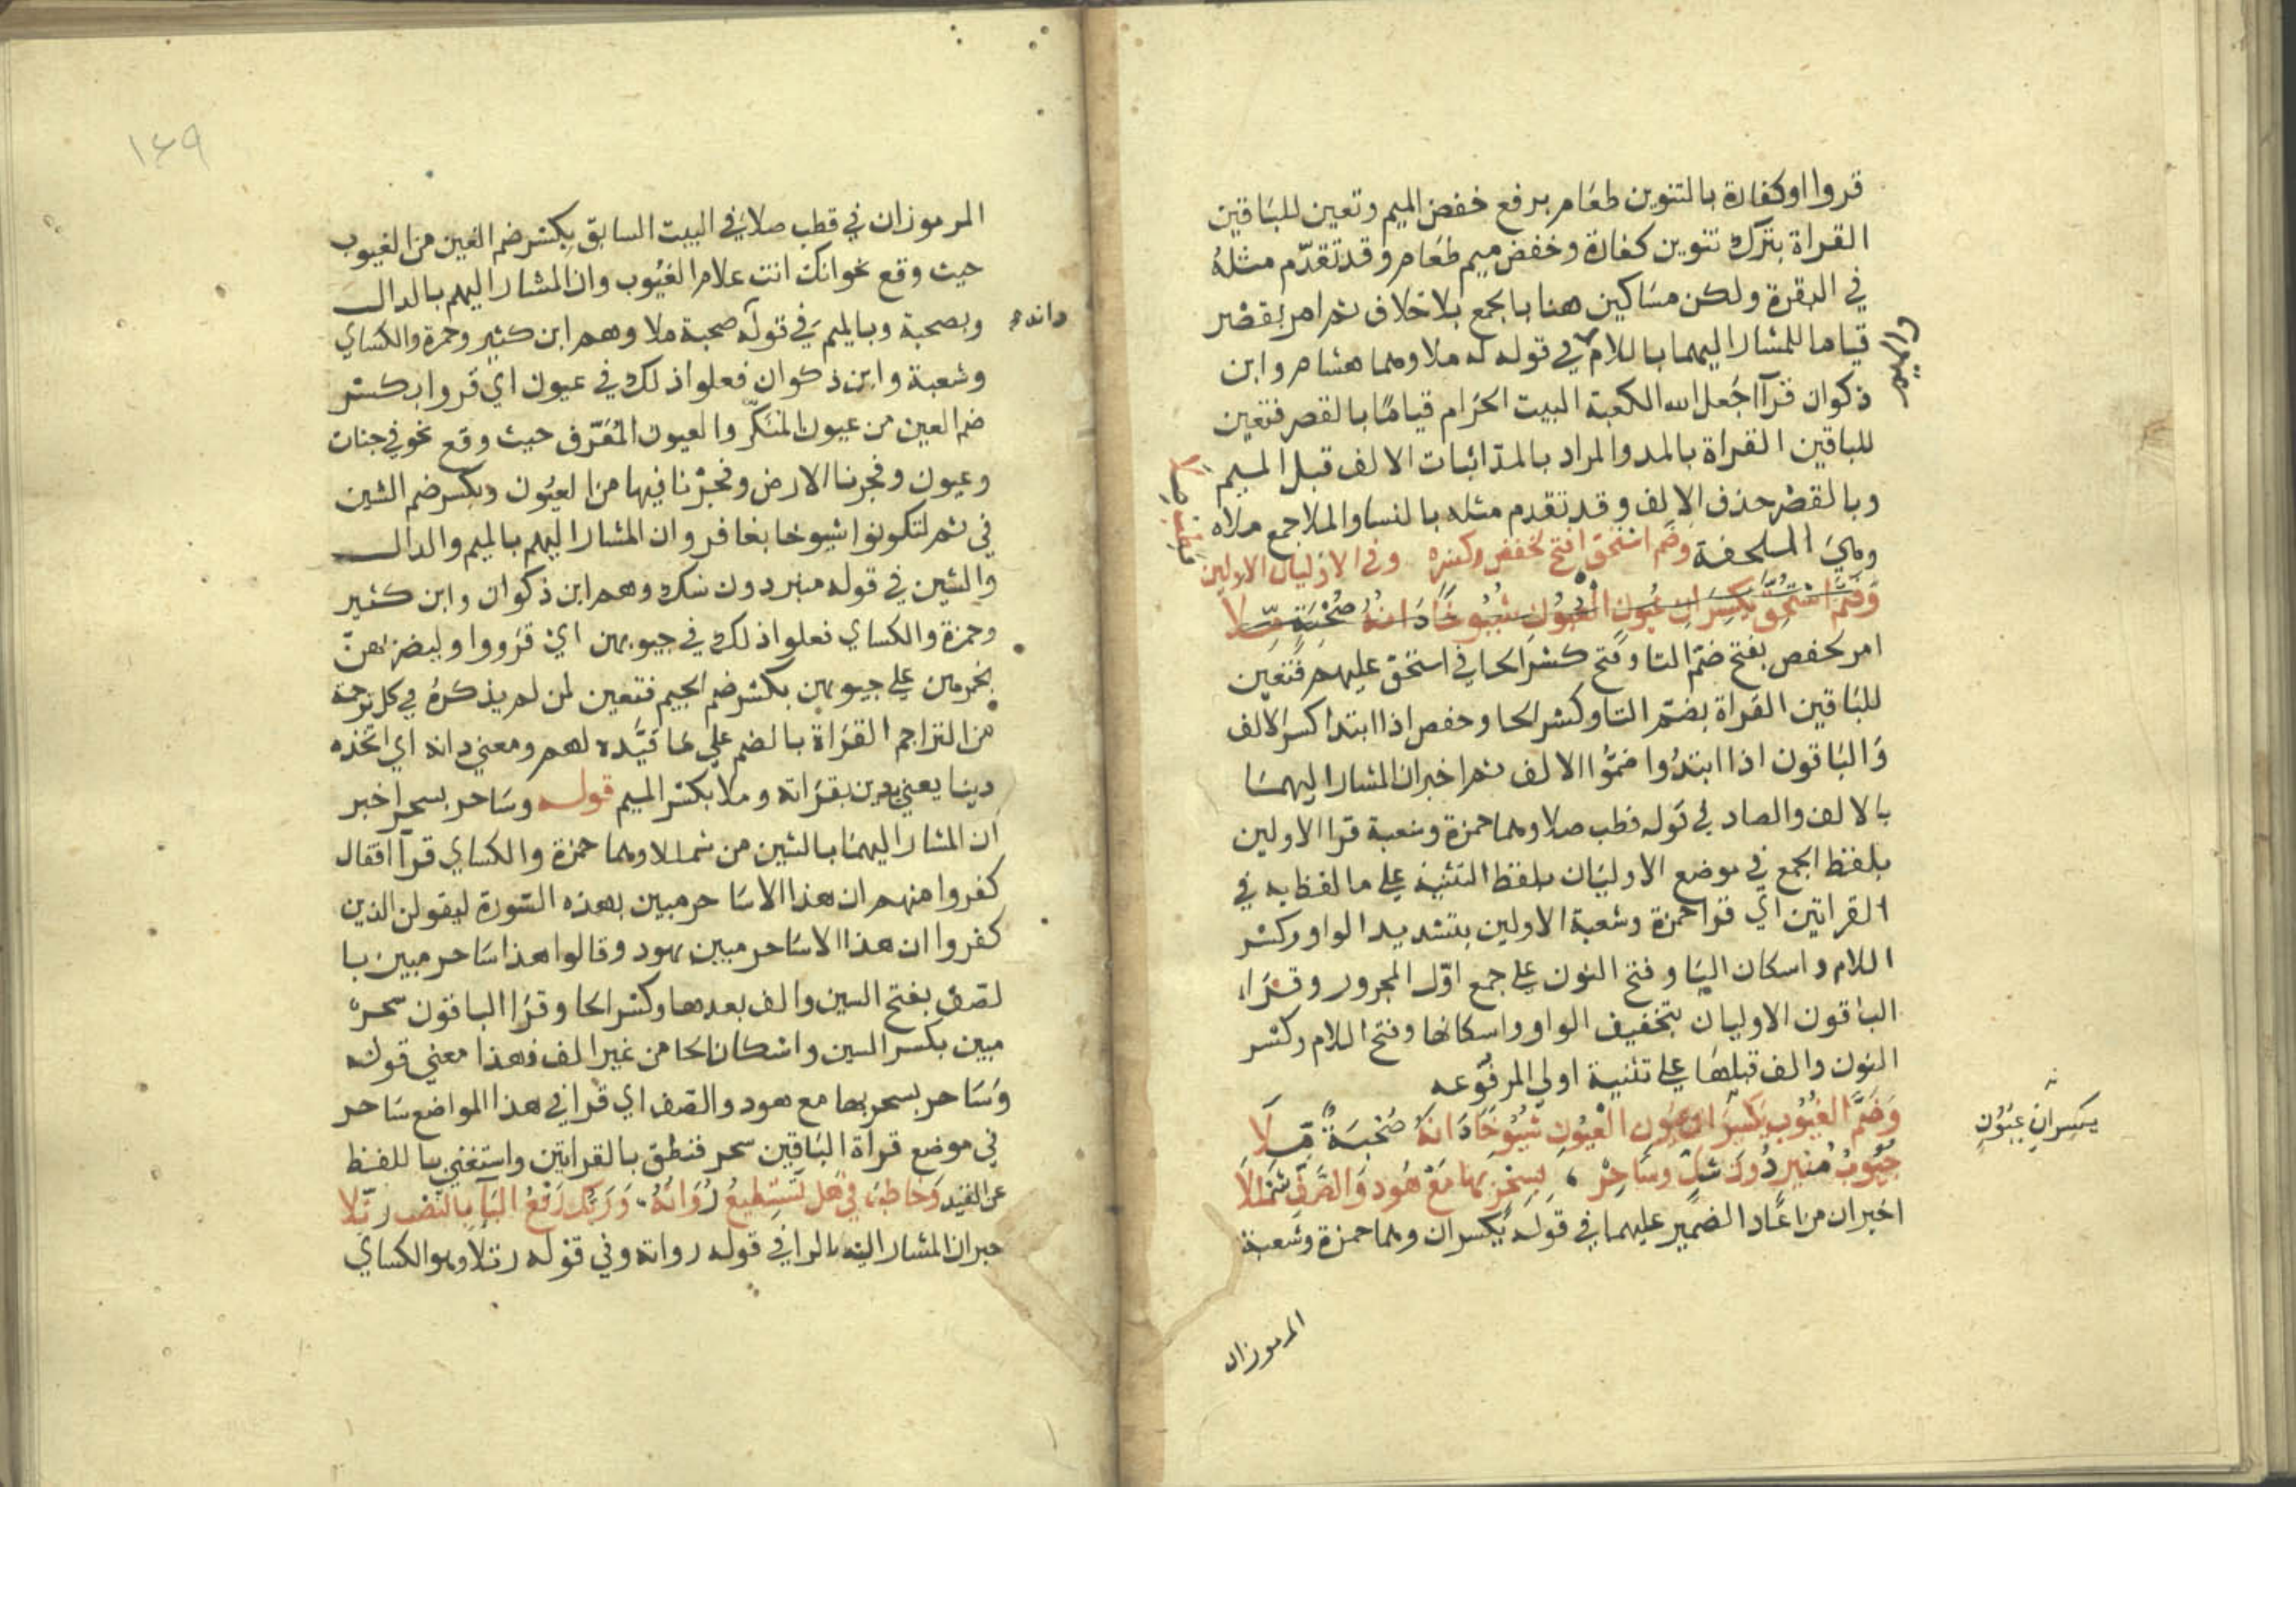 قروا اوكفارة بالتنوين طعام برفع خفض الميم وتعين للباقين
القراة بترك تنوين كفارة وخفض ميم طعام وقد تقدم مثله
في البقرة ولكن مساكين هنا بالجمع بلا خلاف ثم امر بقصر
قياما للمشار اليهما باللام في قوله له ملا وهما هشام وابن
والميم
ذكوان قرآ اجعل الله الكعبة البيت الحرام قياما بالقصر فتعين
للباقين القراة بالمد والمراد بالمد اثبات الالف قبل الميم
وبالقصر حذف الالف وقد تقدم مثله بالنسا والملا جمع ملاه
وهي الملحفة وضم استحق افتح لحفص وكسره وفي الاوليان الاولين
فطب صلا
وضم استحق يكسران عيون العيون شيوخا دانه صحبة ملا
امر لحفص بفتح ضم التا وفتح كسر الحا في استحق عليهم فتعين
للباقين القراة بضم التا وكسر الحا وحفص اذا ابتدا كسر الالف
والباقون اذا ابتدؤا ضموا الالف ثم اخبر ان المشار اليهما
بالالف والصاد في قوله فطب صلا وهما حمزة وشعبة قرا الاولين
بلفظ الجمع في موضع الاوليان بلفظ التثنية علي ما لفظ به في
القراتين اي قرا حمزة وشعبة الاولين بتشديد الواو وكسر
اللام واسكان اليا وفتح النون علي جمع اول المجرور وقرا
الباقون الاوليان بتخفيف الواو واسكانها وفتح اللام وكسر
النون والف قبلها علي تثنية اولي المرفوعه
وضم الغيوب يكسران عيون العيون شيوخا دانه صحبة ملا
يكسران عيون
جيوب منير دون شك وساحر بسحر بها مع هود والصف شمللا
اخبر ان من اعاد الضمير عليهما في قوله يكسران وهما حمزة وشعبة
المرموزان
١٤٩
المرموزان في قطب صلا في البيت السابق بكسر ضم الغين من الغيوب
حيث وقع نحو انك انت علام الغيوب وان المشار اليهم بالدال
وبصحبة وبالميم في قوله صحبة ملا وهم ابن كثير وحمزة والكساي
دانه
وشعبة وابن ذكوان فعلوا ذلك في عيون اي قروا بكسر
ضم العين من عيون المنكر والعيون المعرف حيث وقع نحو في جنات
وعيون وفجرنا الارض وفجرنا فيها من العيون وبكسر ضم الشين
في ثم لتكونوا شيوخا بغافر وان المشار اليهم بالميم والدال
والشين في قوله منير دون شك وهم ابن ذكوان وابن كثير
وحمزة والكساي فعلوا ذلك في جيوبهن اي قرووا وليضربهن
بخمرهن علي جيوبهن بكسر ضم الجيم فتعين لمن لم يذكره في كل ترجمة
من التراجم القراة بالضم علي ما قيده لهم ومعني دانه اي اتخذه
دينا يعني يدين بقراته وملا بكسر الميم قوله وساحر بسحر اخبر
ان المشار اليهما بالشين من شمللا وهما حمزة والكساي قرآ افقال
كفروا منهم ان هذا الا ساحر مبين بهذه السورة ليقولن الذين
كفروا ان هذا الا ساحر مبين بهود وقالوا هذا ساحر مبين با
لصف بفتح السين والف بعدها وكسر الحا وقرا الباقون سحر
مبين بكسر السين واسكان الحا من غير الف فهذا معني قوله
وساحر بسحر بها مع هود والصف اي قرا في هذا المواضع ساحر
في موضع قراة الباقين سحر فنطق بالقراتين واستغني بها للفظ
عن القيد وخاطب في هل تستطيع رواته وربك رفع اليا بالنصب رتلا
خبر ان المشار اليه بالرا في قوله رواته وفي قوله رتلا وهو الكساي